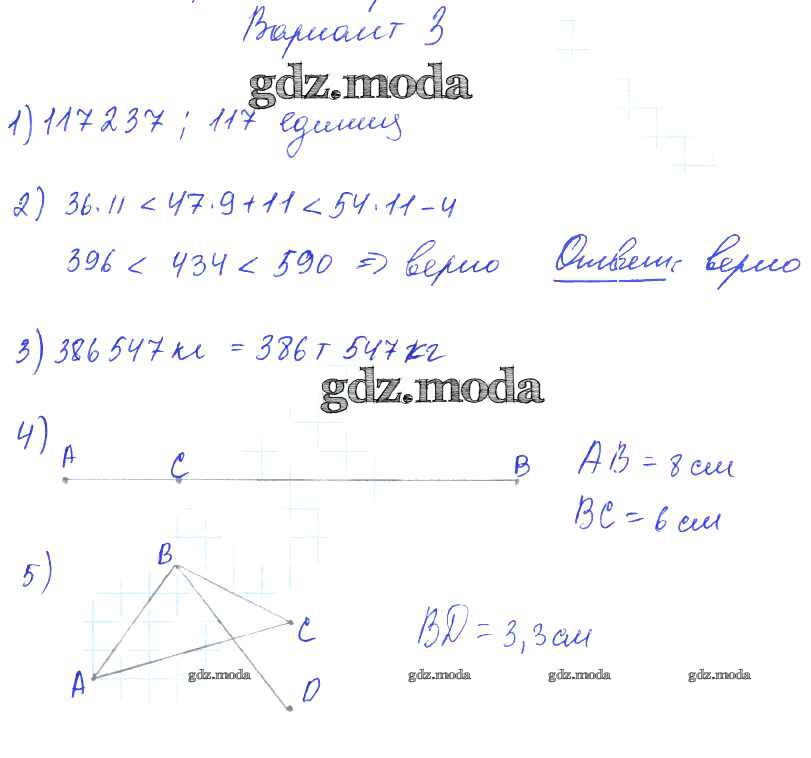 Вариант 3
gdz.moda
1) 117237 ; 117 единиц
2) 36·11 < 47·9+11 < 54·11-4
396 < 434 < 590 => верно Ответ: верно
3) 386547 кг = 386т 547кг
gdz.moda
4)
A C B AB = 8 см
BC = 6 см
5) B
C BD = 3,3 см
A gdz.moda D gdz.moda gdz.moda gdz.moda